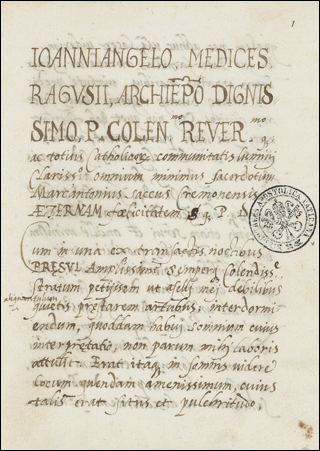 1
IOANNIANGELO, MEDICES
RAGVSII, ARCHIEPO DIGNIS
SIMO, P. COLEN.mo REVER.mo
ac totius Catholicae communitatis
Clariss.o omnium minimus sacerdotum
Marcantonius Saccus Cremonensis
ÆTERNAM felicitatem S. q. P. D.
Cum in una ex transactis noctibus
PRESVL Amplissime Semperq Colendisse
stratum petijssem ut aselli mei debilibus
quietem prestarem artubus, interdormi
endum, quoddam habui somnium cuius
interpretatio, non parum mihi laboris
attulit. Erat itaq in somnis videre
locum quendam amenissimum, cuius
talis erat situs et pulchritudo,